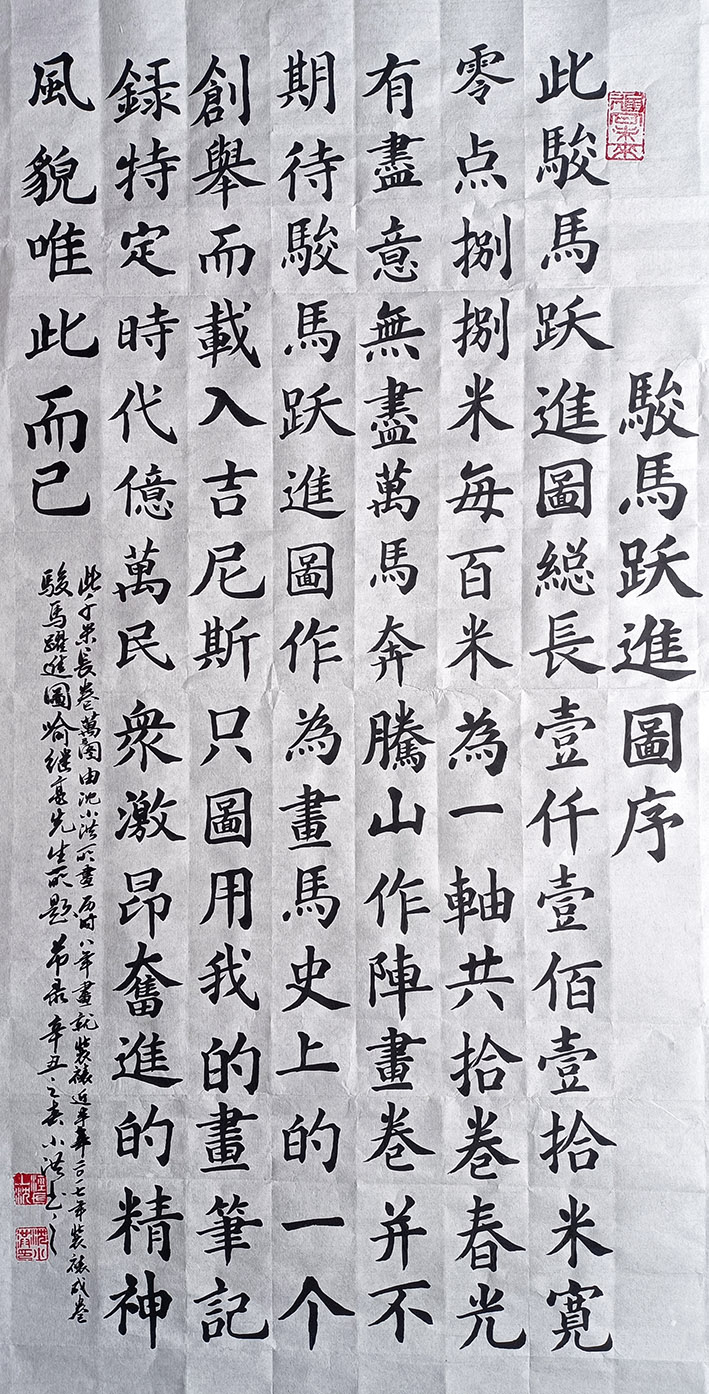 駿馬跃進圖序
此駿馬跃進圖総長壹仟壹佰壹拾米寬
零点捌捌米每百米為一軸共拾卷春光
有盡意無盡萬馬奔騰山作陣畫卷并不
期待駿馬跃進圖作為畫馬史上的一个
創舉而載入吉尼斯只圖用我的畫筆記
録特定時代億萬民眾激昂奮進的精神
風貌唯此而已
此千米長卷萬圖由沈小洪所畫歷时八年畫就裝裱近半年二〇一七年裝裱成卷
駿馬躍進圖喻继高先生所題 节录 辛丑之春小洪书之